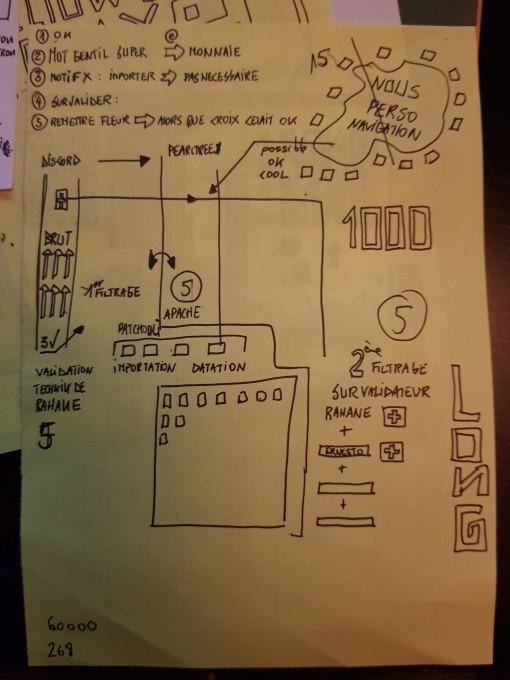 ① OK @
② MOT GENTIL SUPER ⇒ MONNAIE
③ MOTIF X : IMPORTER ⇒ PAS NECESSAIRE
④ SURVALIDER :
⑤ REMETTRE FLEUR ⇒ ALORS QUE CROIX ETAIT OK
15
NOUS
PERSO
NAVIGATION
DISCORD → PEARLTREES
possible
OK
COOL
1000
BRUT
1er FILTRAGE
⑤
APACHE
PATCHOULI
3√
IMPORTATION DATATION
VALIDATION
TECHNIK DE
RAHANE
5
⑤
2ème FILTRAGE
SURVALIDATEUR
RAHANE +
+
ERNESTO +
+
+
LONG
60000
268